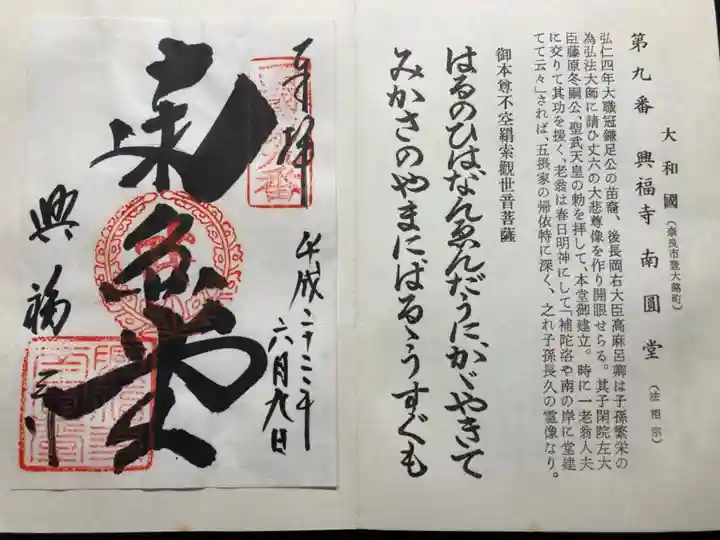 第九番 興福寺 南圓堂 (法相宗)
大和國 (奈良市登大路町)
弘仁四年大職冠鎌足公の苗裔、後長岡右大臣高麻呂卿は子孫繁栄の
為弘法大師に請ひ丈六の大悲尊像を作り開眼せらる。其子閑院左大
臣藤原冬嗣公、聖武天皇の勅を拝して、本堂御建立。時に一老翁人夫
に交りて其功を援く、老翁は春日明神にして「補陀洛や南の岸に堂建
てて云々」されば、五摂家の帰依特に深く、之れ子孫長久の霊像なり。
御本尊不空羂索觀世音菩薩
はるのひはなんゑんだうにかゞやきて
みかさのやまにはるゝうすぐも
奉拝
平成二十二年
六月九日
興福寺